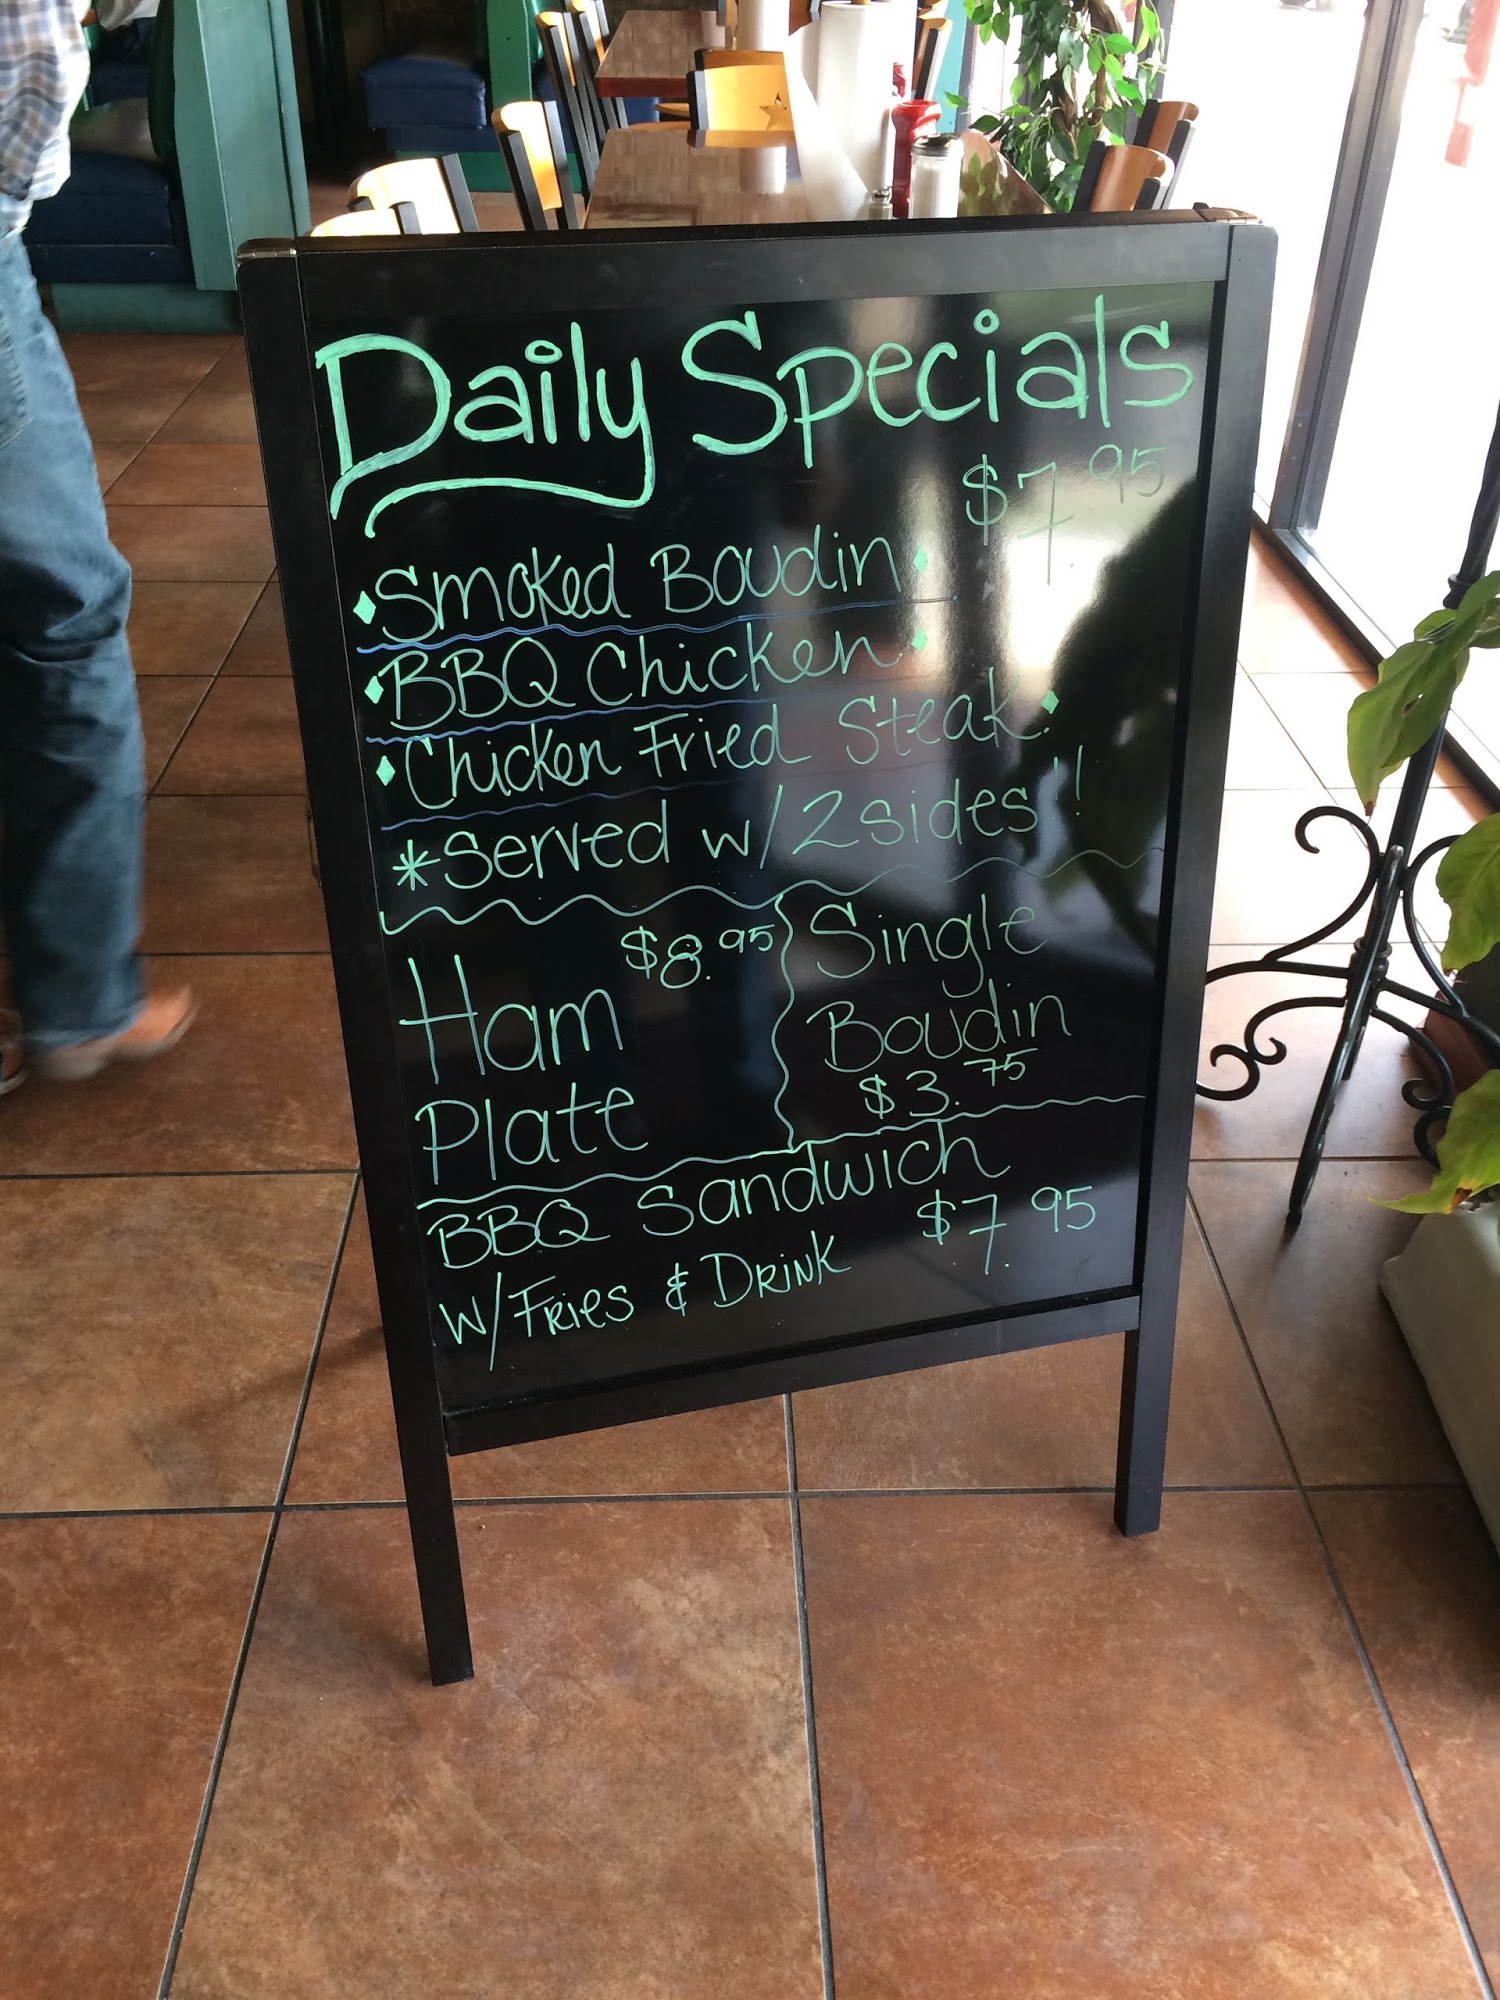 Daily Specials
$7.95
Smoked Boudin
BBQ Chicken
Chicken Fried Steak
*Served w/ 2 sides!!
Ham $8.95
Plate
Single
Boudin
$3.75
BBQ Sandwich
w/ Fries & Drink $7.95